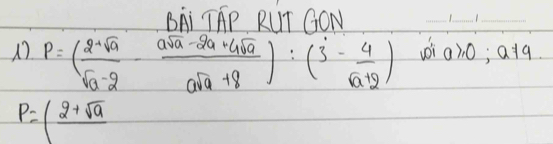 BÀI TẬP RÚT GỌN
1) P = (2+√a / √a-2 - a√a - 2a + 4√a / a√a + 8) : (3 - 4 / √a+2) với a≥0 ; a≠9
P = (2+√a